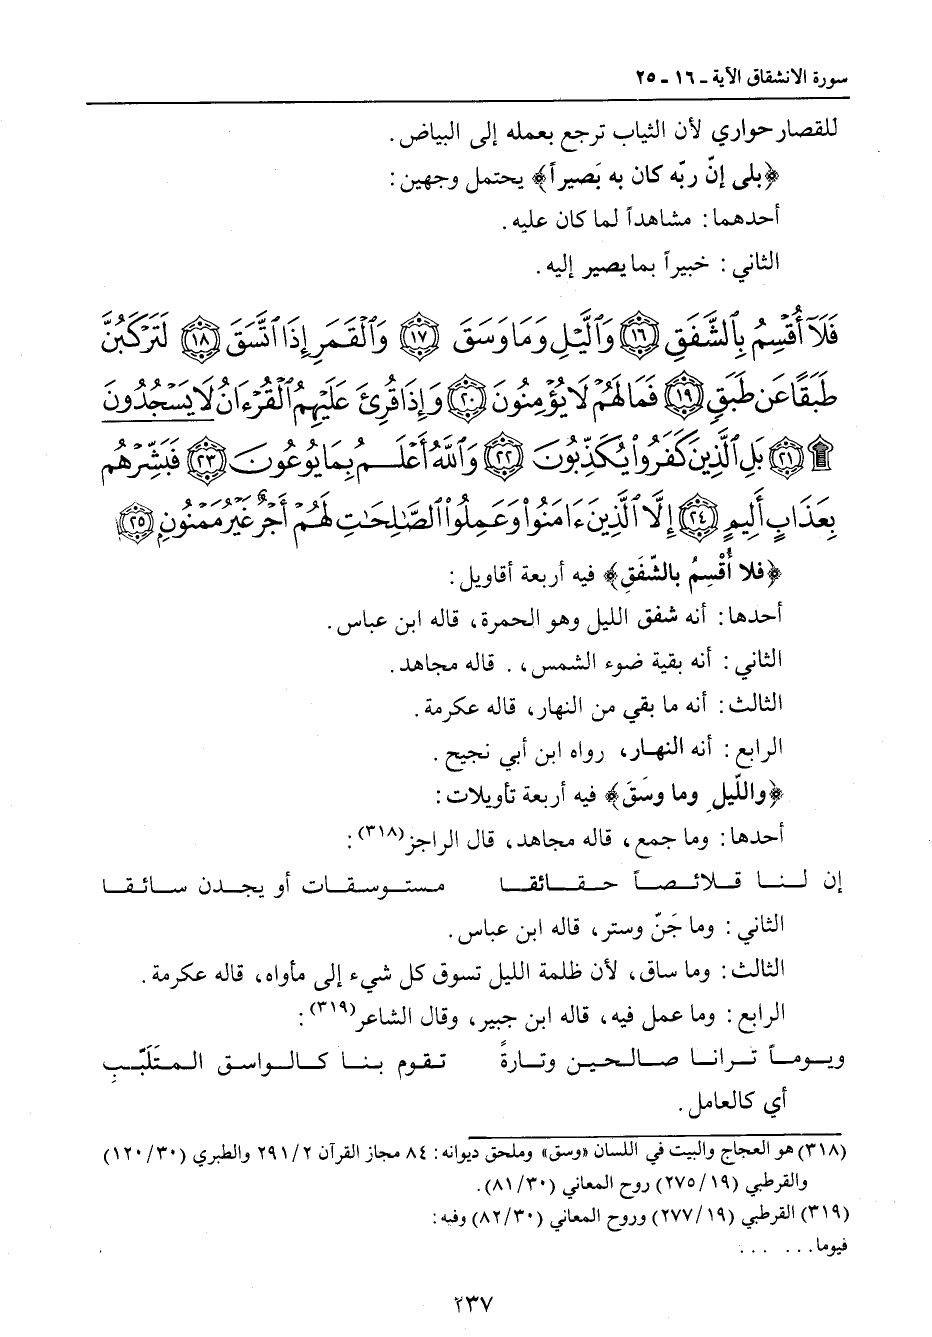 سورة الانشقاق الآية ـ ١٦ ـ ٢٥
للقصار حواري لأن الثياب ترجع بعمله إلى البياض .
﴿بلى إنّ ربّه كان به بَصيراً﴾ يحتمل وجهين :
أحدهما : مشاهداً لما كان عليه .
الثاني : خبيراً بما يصير إليه .
فَلَآ أُقْسِمُ بِٱلشَّفَقِ ١٦ وَٱلَّيْلِ وَمَا وَسَقَ ١٧ وَٱلْقَمَرِ إِذَا ٱتَّسَقَ ١٨ لَتَرْكَبُنَّ
طَبَقًا عَن طَبَقٍ ١٩ فَمَا لَهُمْ لَا يُؤْمِنُونَ ٢٠ وَإِذَا قُرِئَ عَلَيْهِمُ ٱلْقُرْءَانُ لَا يَسْجُدُونَ
۩ ٢١ بَلِ ٱلَّذِينَ كَفَرُوا۟ يُكَذِّبُونَ ٢٢ وَٱللَّهُ أَعْلَمُ بِمَا يُوعُونَ ٢٣ فَبَشِّرْهُم
بِعَذَابٍ أَلِيمٍ ٢٤ إِلَّا ٱلَّذِينَ ءَامَنُوا۟ وَعَمِلُوا۟ ٱلصَّـٰلِحَـٰتِ لَهُمْ أَجْرٌ غَيْرُ مَمْنُونٍ ٢٥
﴿فلا أُقْسِمُ بالشّفَقِ﴾ فيه أربعة أقاويل :
أحدها : أنه شفق الليل وهو الحمرة، قاله ابن عباس .
الثاني : أنه بقية ضوء الشمس، . قاله مجاهد .
الثالث : أنه ما بقي من النهار، قاله عكرمة .
الرابع : أنه النهار، رواه ابن أبي نجيح .
﴿والليلِ وما وسَقَ﴾ فيه أربعة تأويلات :
أحدها : وما جمع، قاله مجاهد، قال الراجز(٣١٨) :
إن لنا قلائصاً حقائقا مستوسقات أو يجدن سائقا
الثاني : وما جَنّ وستر، قاله ابن عباس .
الثالث : وما ساق، لأن ظلمة الليل تسوق كل شيء إلى مأواه، قاله عكرمة .
الرابع : وما عمل فيه، قاله ابن جبير، وقال الشاعر(٣١٩) :
ويوماً ترانا صالحين وتارةً تقوم بنا كالواسق المتَلَبّبِ
أي كالعامل .
(٣١٨) هو العجاج والبيت في اللسان «وسق» وملحق ديوانه : ٨٤ مجاز القرآن ٢/٢٩١ والطبري (٣٠/١٢٠)
والقرطبي (١٩/٢٧٥) روح المعاني (٣٠/٨١) .
(٣١٩) القرطبي (١٩/٢٧٧) وروح المعاني (٣٠/٨٢) وفيه :
فيوما . . . . . .
٢٣٧